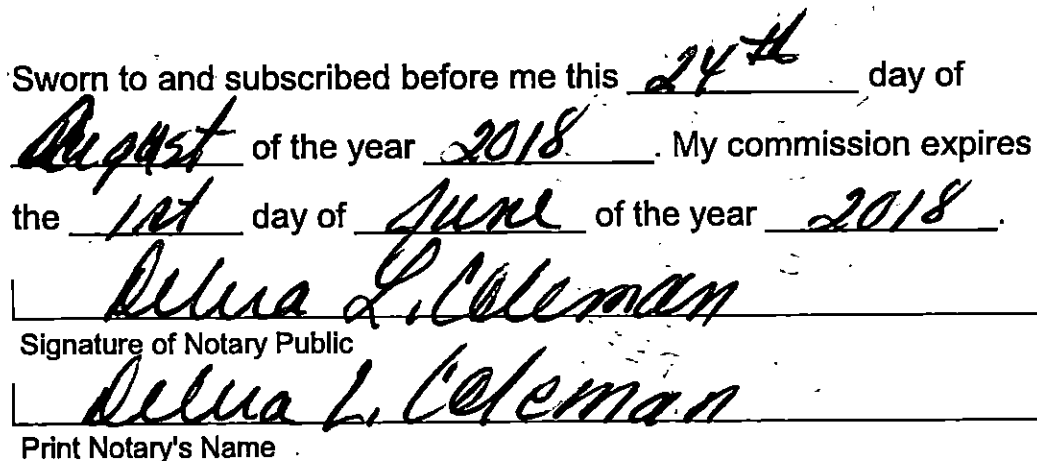 Sworn to and subscribed before me this 24th day of
August of the year 2018. My commission expires
the 1st day of June of the year 2018.
Debra L. Coleman
Signature of Notary Public
Debra L. Coleman
Print Notary's Name